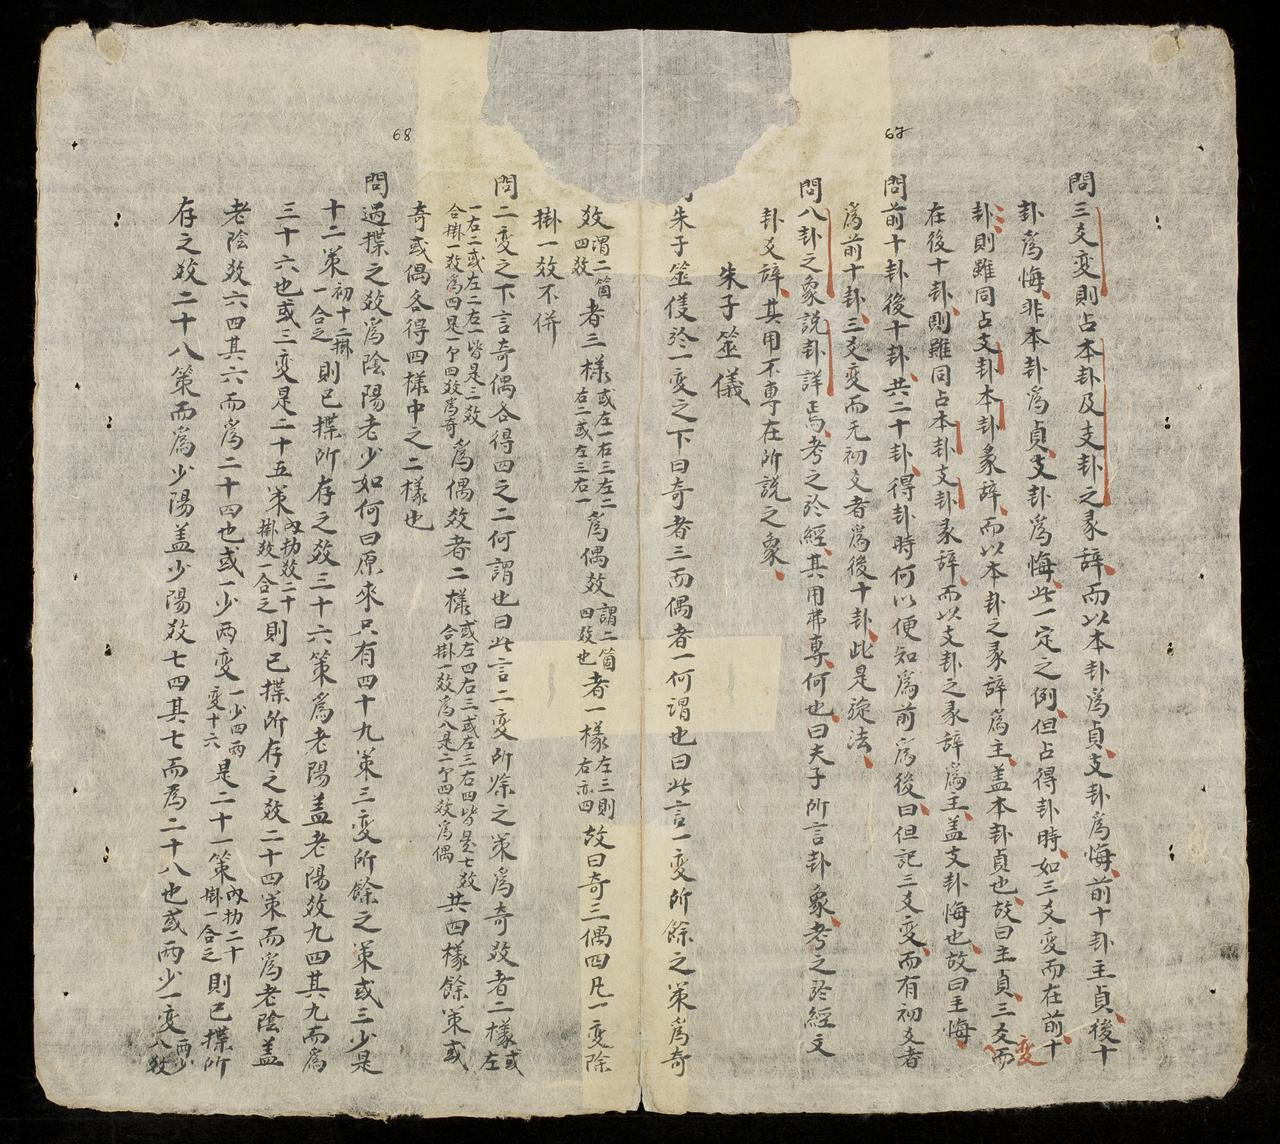 67
問三爻變則占本卦及支卦之彖辭而以本卦爲貞支卦爲悔前十卦主貞後十
卦爲悔非本卦爲貞支卦爲悔此一定之例但占得卦時如三爻變而在前十
卦則雖同占支卦本卦彖辭而以本卦之彖辭爲主盖本卦貞也故曰主貞三爻變而
在後十卦則雖同占本卦支卦彖辭而以支卦之彖辭爲主盖支卦悔也故曰主悔
問前十卦後十卦共二十卦得卦時何以便知爲前爲後曰但記三爻變而有初爻者
爲前十卦三爻變而无初爻者爲後十卦此是旋法
問八卦之象說卦詳焉考之於經其用弗專何也曰夫子所言卦象考之於經文
卦爻辭其用不專在所說之象
朱子筮儀
朱子筮儀於一變之下曰奇者三而偶者一何謂也曰此言一變所餘之策爲奇
68
效謂二箇四效者三樣或左一右三左二右二或左三右一爲偶效謂二箇四效也者一樣左三則右亦四故曰奇三偶四凡一變除
掛一效不併
問二變之下言奇偶各得四之二何謂也曰此言二變所馀之策爲奇效者二樣或左
一右二或左二右一皆是三效合掛一效爲四是一个四效爲奇爲偶效者二樣或左四右三或左三右四皆是七效合掛一效爲八是二个四效爲偶共四樣餘策或
奇或偶各得四樣中之二樣也
問過揲之效爲陰陽老少如何曰原來只有四十九策三變所餘之策或三少是
十二策初十二掛一合之則已揲所存之效三十六策爲老陽盖老陽效九四其九而爲
三十六也或三變是二十五策內扐效二十掛效一合之則已揲所存之效二十四策而爲老陰盖
老陰效六四其六而爲二十四也或一少兩變一少四兩變十六是二十一策內扐二十掛一合之則已揲所
存之效二十八策而爲少陽盖少陽效七四其七而爲二十八也或兩少一變兩少八效